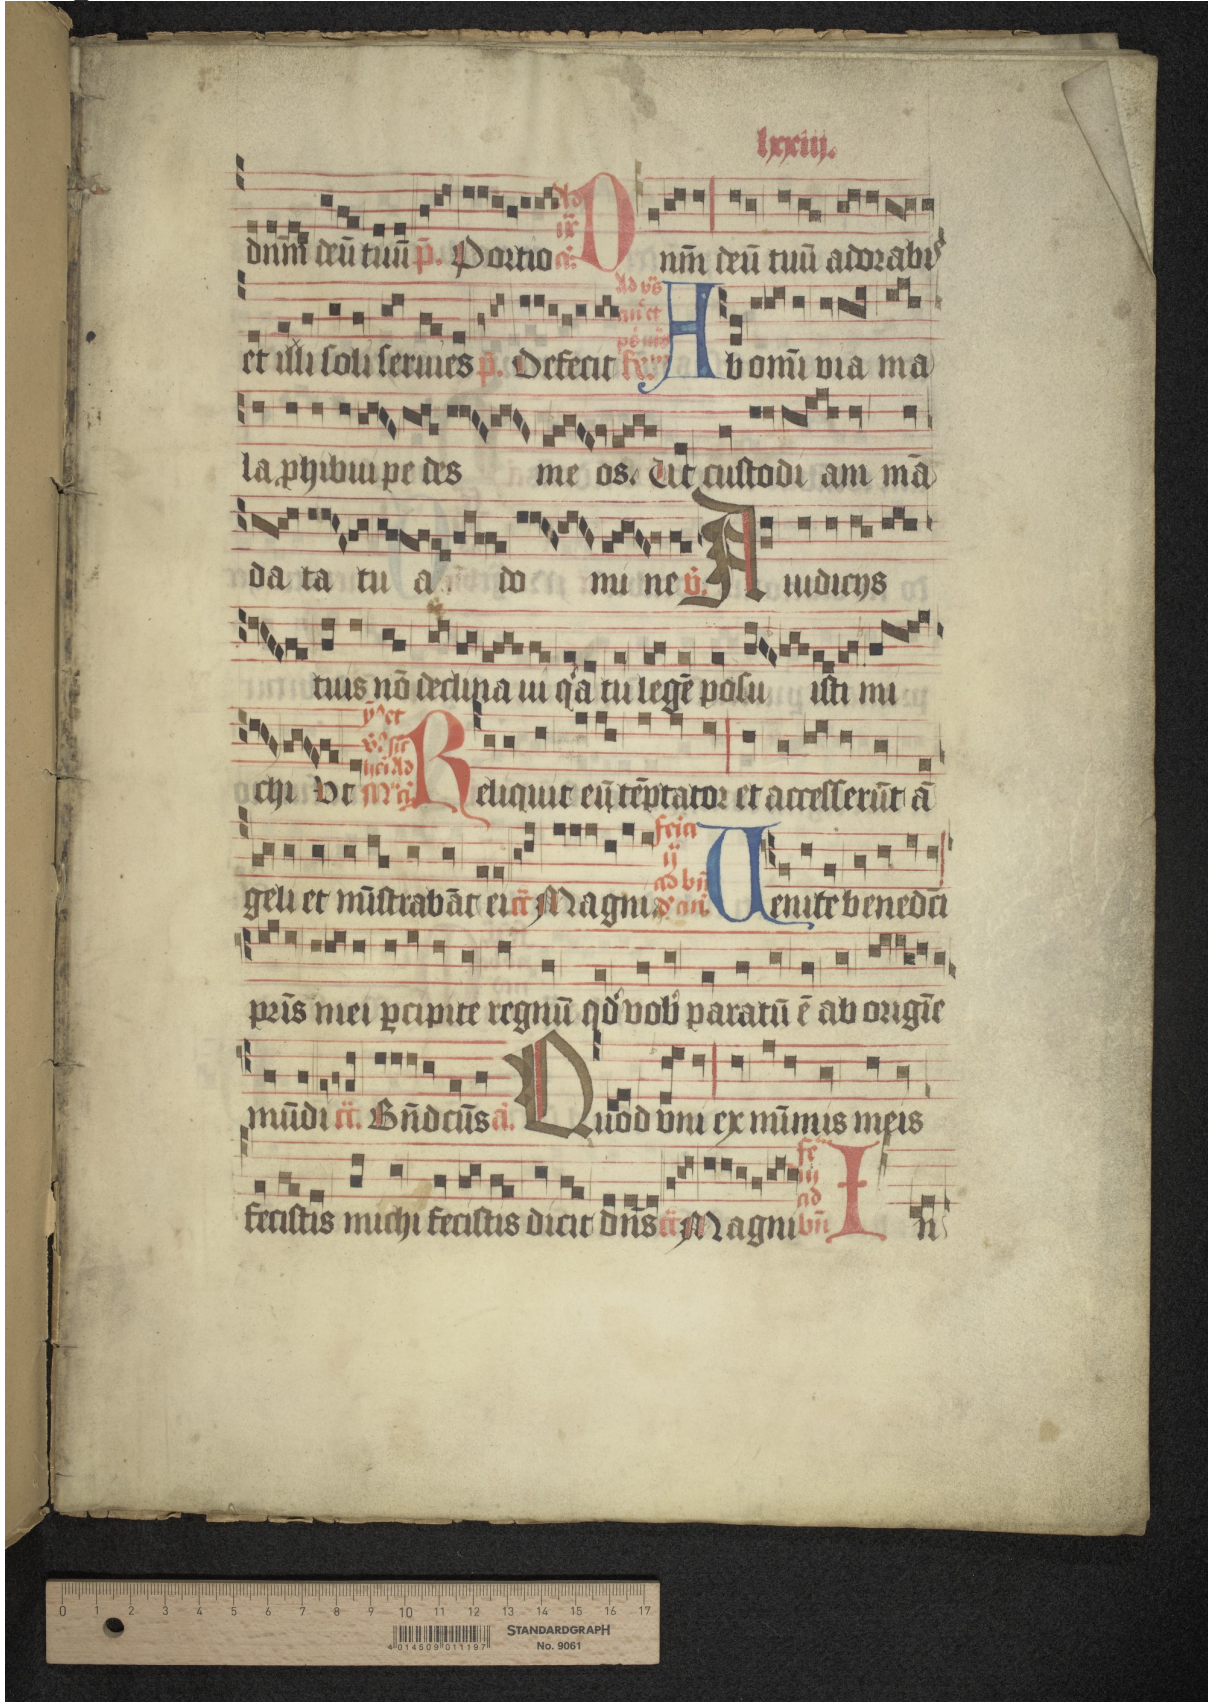 lxxiij.
dn̄m deū tuū p̄. Portio Ad ix aᷓ. Dn̄m deū tuū adorabis
et illi soli seruies p̄. Defecit Ab om̄i via ma
la ꝓhibui pedes meos. Ut custodiam mā
data tua domine v̄. A iudicijs
tuis nō declinaui q̄a tu legē posuisti mi
chi Vt Reliquit eū tēptator et accesserūt ā
geli et mīstrabāt ei aᷓ Magni feria ij ad bn̄ Uenite benedc̄i
pr̄is mei ꝑcipite regnū qd̕ vob̕ paratū ē ab origīe
mūdi aᷓ. Bn̄dcūs aᷓ. Quod vni ex mīmis meis
fecistis michi fecistis dicit dn̄s aᷓ Magni fe᷑ iij ad bn̄ In
0 1 2 3 4 5 6 7 8 9 10 11 12 13 14 15 16 17
4 014509 011197
STANDARDGRAPH
No. 9061